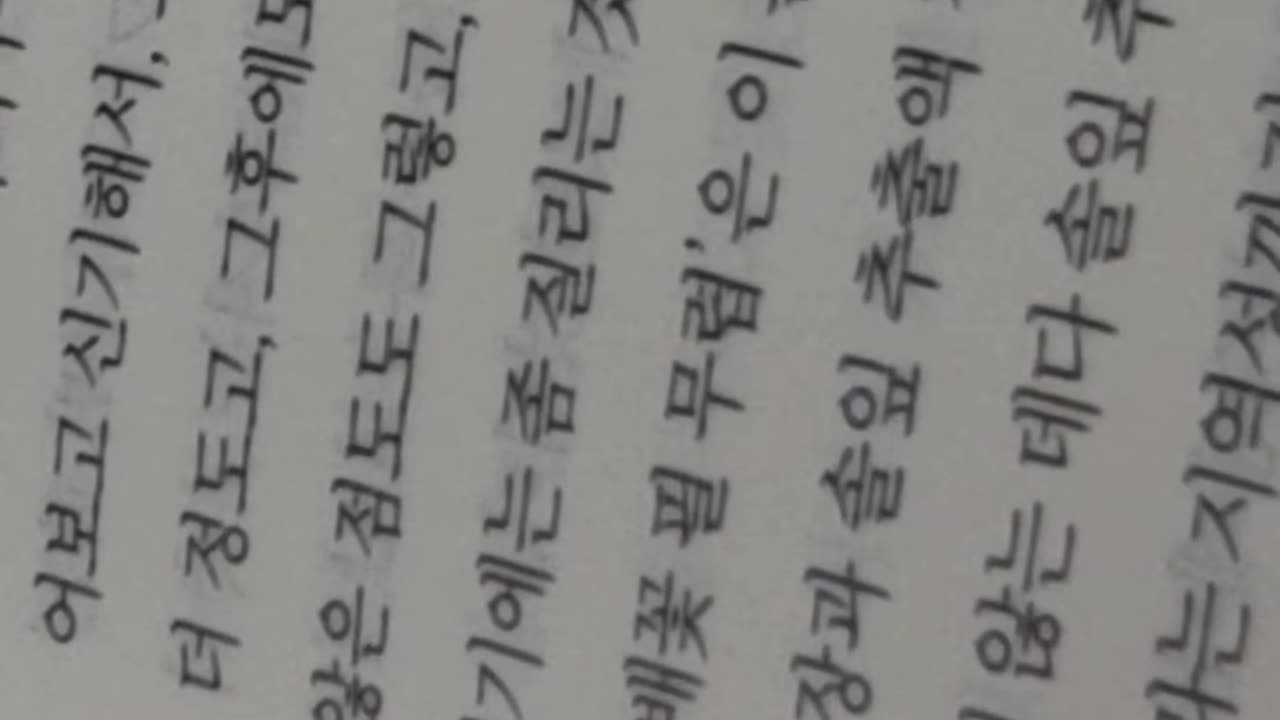 어보고 신기해서,
더 정도고, 그후에도
않은 점도도 그렇고,
기에는 좀 질리는 것
배꽃 필 무렵’은 이
장과 솔잎 추출액
않는 데다 솔잎 추
는 지역서까지